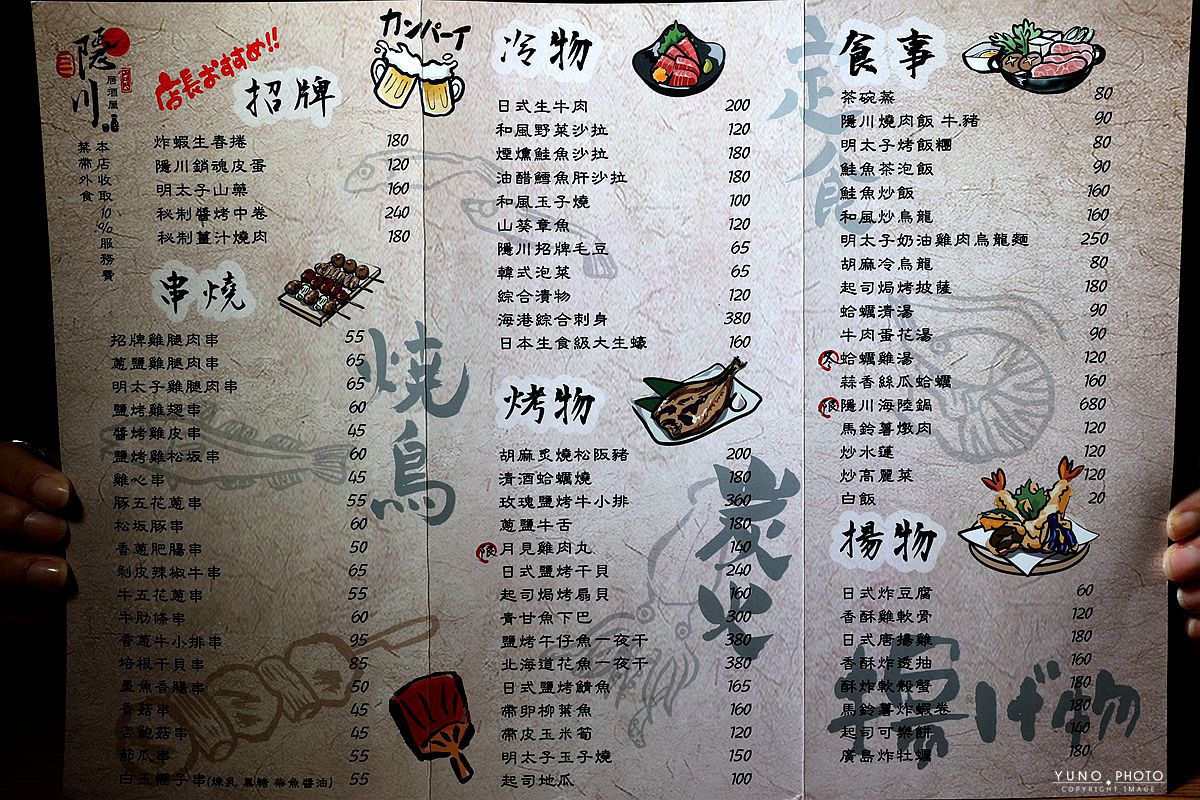 隱川
居酒屋
本店收取10%服務費
禁帶外食
店長おすすめ!!
招牌
カンパーイ
炸蝦生春捲 180
隱川銷魂皮蛋 120
明太子山藥 160
秘制醬烤中卷 240
秘制薑汁燒肉 180
串燒
招牌雞腿肉串 55
蔥鹽雞腿肉串 65
明太子雞腿肉串 65
鹽烤雞翅串 60
醬烤雞皮串 45
鹽烤雞松坂串 60
雞心串 45
豚五花蔥串 55
松坂豚串 60
香蔥肥腸串 50
剝皮辣椒牛串 65
牛五花蔥串 55
牛肋條串 60
香蔥牛小排串 95
培根干貝串 85
墨魚香腸串 50
香菇串 45
杏鮑菇串 45
節瓜串 55
白玉糰子串(煉乳 黑糖 柴魚醬油) 55
燒鳥
冷物
日式生牛肉 200
和風野菜沙拉 120
煙燻鮭魚沙拉 180
油醋鱈魚肝沙拉 180
和風玉子燒 100
山葵章魚 120
隱川招牌毛豆 65
韓式泡菜 65
綜合漬物 120
海港綜合刺身 380
日本生食級大生蠔 160
烤物
胡麻炙燒松阪豬 200
清酒蛤蠣燒 180
玫瑰鹽烤牛小排 360
蔥鹽牛舌 180
限 月見雞肉丸 140
日式鹽烤干貝 240
起司焗烤扇貝 160
青甘魚下巴 300
鹽烤午仔魚一夜干 380
北海道花魚一夜干 380
日式鹽烤鯖魚 165
帶卵柳葉魚 160
帶皮玉米筍 120
明太子玉子燒 150
起司地瓜 100
炭火
定食
食事
茶碗蒸 80
隱川燒肉飯 牛.豬 90
明太子烤飯糰 80
鮭魚茶泡飯 90
鮭魚炒飯 160
和風炒烏龍 160
明太子奶油雞肉烏龍麵 250
胡麻冷烏龍 80
起司焗烤披薩 180
蛤蠣清湯 90
牛肉蛋花湯 90
冬 蛤蠣雞湯 120
蒜香絲瓜蛤蠣 160
限 隱川海陸鍋 680
馬鈴薯燉肉 120
炒水蓮 120
炒高麗菜 120
白飯 20
揚物
日式炸豆腐 60
香酥雞軟骨 120
日式唐揚雞 180
香酥炸透抽 160
酥炸軟殼蟹 180
馬鈴薯炸蝦卷 180
起司可樂餅 140
廣島炸牡蠣 180
揚げ物
YUNO PHOTO
COPYRIGHT IMAGE